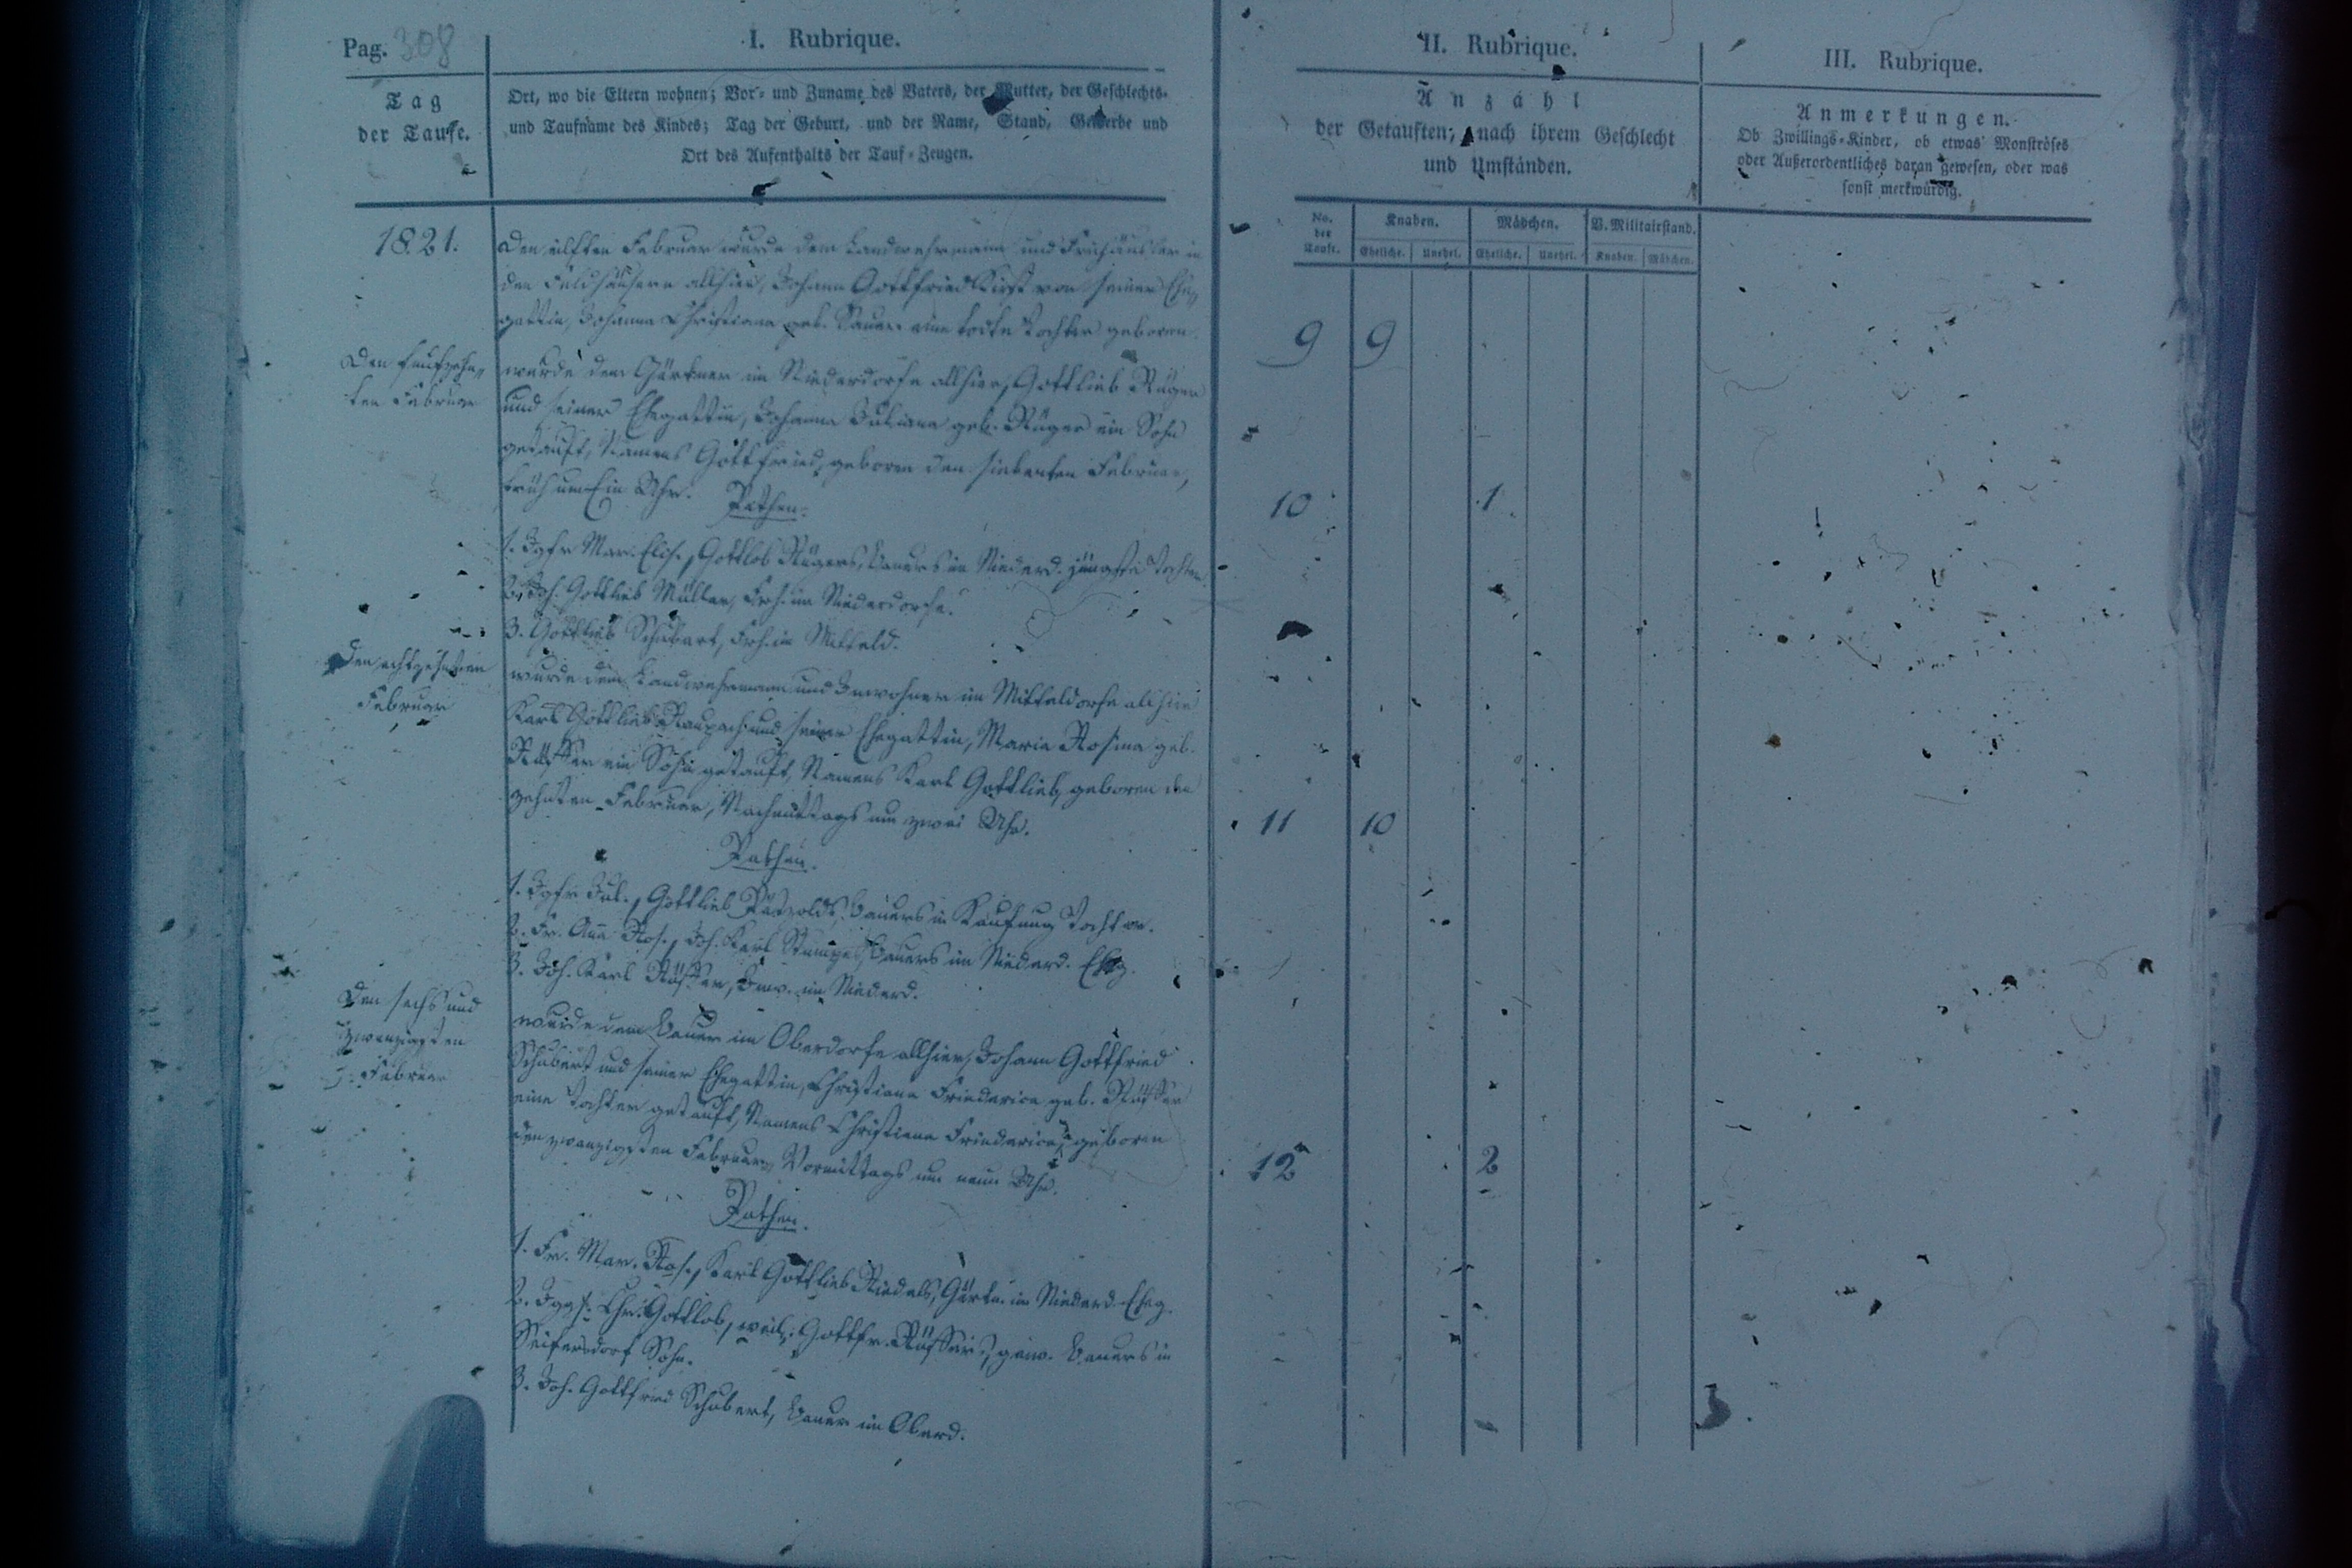 Pag. 308
I. Rubrique.
II. Rubrique.
III. Rubrique.
Tag
der Taufe.
Ort, wo die Eltern wohnen; Vor- und Zuname des Vaters, der Mutter, der Geschlechts-
und Taufname des Kindes; Tag der Geburt, und der Name, Stand, Gewerbe und
Ort des Aufenthalts der Tauf-Zeugen.
Anzahl
der Getauften; nach ihrem Geschlecht
und Umständen.
Anmerkungen.
Ob Zwillings-Kinder, ob etwas Monströses
oder Außerordentliches daran gewesen, oder was
sonst merkwürdig.
No. der Taufe.
Knaben.
Mädchen.
V. Militairstand.
Eheliche.
Unehel.
Eheliche.
Unehel.
Knaben.
Mädchen.
1821.
Den eilften Februar wurde dem Landwehrmann und Freihäusler in
den Feldhäusern allhier, Johann Gottfried von seiner Ehe-
gattin, Johanna Christiana geb. eine todte Tochter geboren.
Den funfzehn-
ten Februar
wurde dem Gärtner im Niederdorfe allhier, Gottlieb Rüger
und seiner Ehegattin, Johanna Juliana geb. Rüger ein Sohn
getauft, Namens Gottfried, geboren den siebenten Februar,
früh um Ein Uhr. Pathen.
9 9
1. Jgfr Mar. Elis., Gottlob Rügers, Bauers im Niederd. jüngste Tochter.
2. Joh. Gottlieb Müller, Frh. im Niederdorfe.
3. Gottlieb Schubart, Frh. im Mitteld.
10 1
Den achtzehnten
Februar
wurde dem Landwehrmann und Inwohner im Mitteldorfe allhier
Karl Gottlieb Raupach und seiner Ehegattin, Maria Rosina geb.
Rüffer ein Sohn getauft, Namens Karl Gottlieb, geboren den
zehnten Februar, Nachmittags um zwei Uhr.
11 10
Pathen.
1. Jgfr Jul., Gottlieb Pätzolds, Bauers in Kaufung Tochter.
2. Fr. Ana Ros., Joh. Karl Stumpes, Bauers im Niederd. Eheg.
3. Joh. Karl Rüffer, Inw. im Niederd.
Den sechs und
zwanzigsten
Februar
wurde dem Bauer im Oberdorfe allhier, Johann Gottfried
Schubert und seiner Ehegattin, Christiana Friederica geb. Rüffer
eine Tochter getauft, Namens Christiana Friederica, geboren
den zwanzigsten Februar, Vormittags um neun Uhr.
12 2
Pathen.
1. Fr. Mar. Ros., Karl Gottlieb Riedels, Gärtn. im Niederd. Eheg.
2. Jggs. Chr. Gottlob, weil. Gottfr. Rüffers, gew. Bauers in
Seifersdorf Sohn.
3. Joh. Gottfried Schubert, Bauer im Oberd.